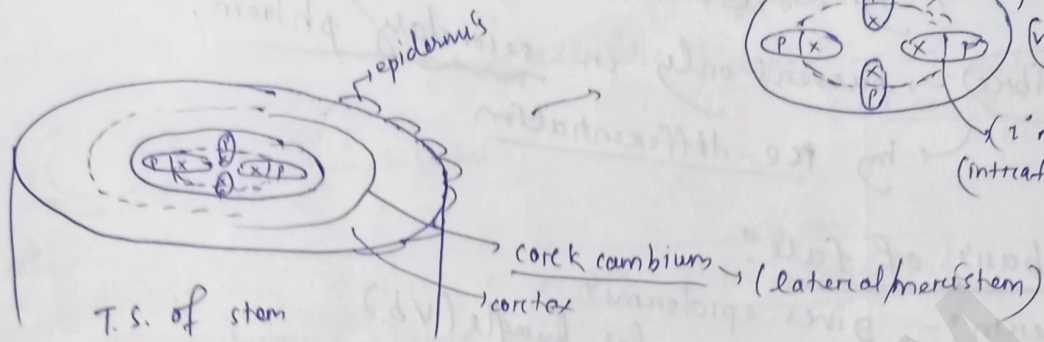 epidermis
P X
X
X P
X
P
(intraf
P X
X P
corck cambium → (laterial/meristem)
cortex
T.S. of stem